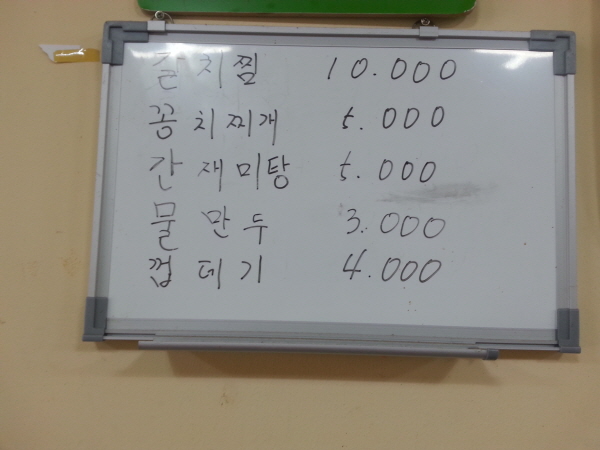 갈치찜 10.000
꽁치찌개 5.000
간재미탕 5.000
물만두 3.000
껍데기 4.000